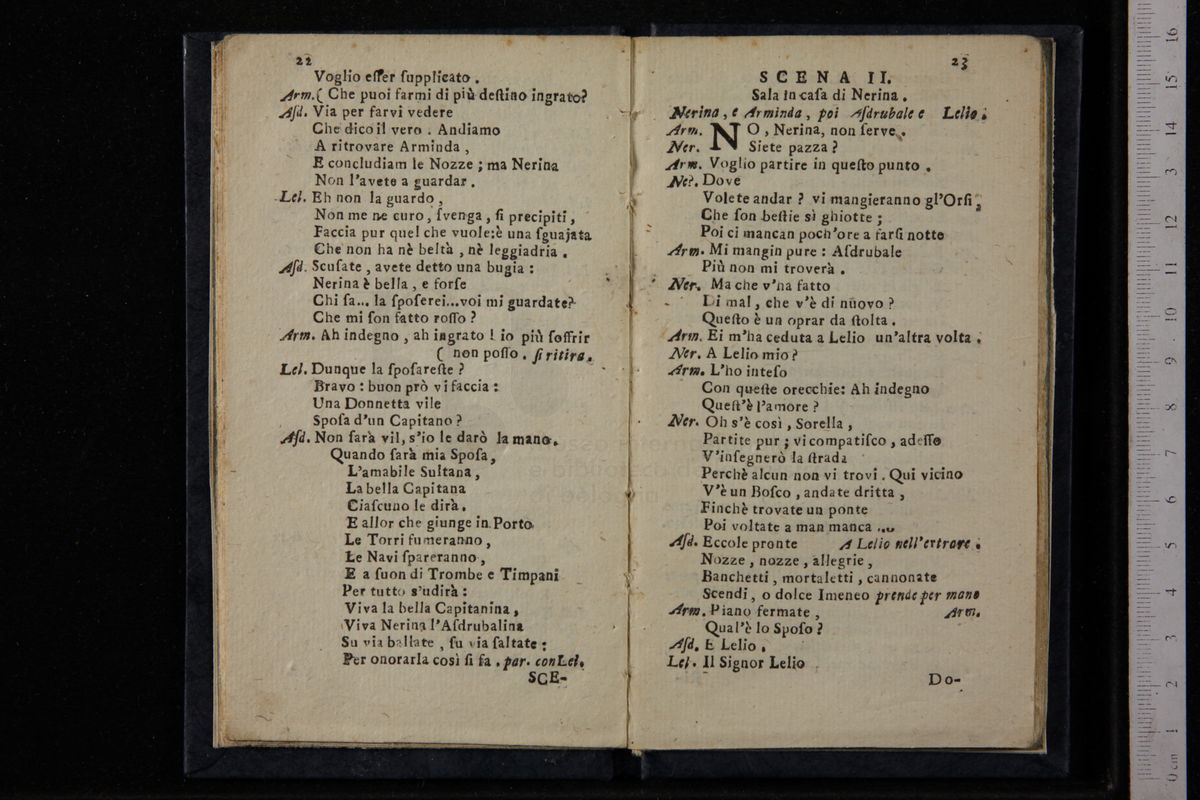 22
Voglio eſſer ſupplicato .
Arm. ( Che puoi farmi di più deſtino ingrato?
Aſd. Via per farvi vedere
Che dico il vero . Andiamo
A ritrovare Arminda ,
E concludiam le Nozze ; ma Nerina
Non l'avete a guardar .
Lel. Eh non la guardo ,
Non me ne curo , ſvenga , ſi precipiti ,
Faccia pur quel che vuole:è una ſguajata
Che non ha nè beltà , nè leggiadria .
Aſd. Scuſate , avete detto una bugia :
Nerina è bella , e forſe
Chi ſa... la ſpoſerei...voi mi guardate?
Che mi ſon fatto roſſo ?
Arm. Ah indegno , ah ingrato ! io più ſoffrir
( non poſſo . ſi ritira .
Lel. Dunque la ſpoſareſte ?
Bravo : buon prò vi faccia :
Una Donnetta vile
Spoſa d'un Capitano ?
Aſd. Non ſarà vil, s'io le darò la mano.
Quando ſarà mia Spoſa,
L'amabile Sultana ,
La bella Capitana
Ciaſcuno le dirà .
E allor che giunge in Porto
Le Torri fumeranno ,
Le Navi ſpareranno ,
E a ſuon di Trombe e Timpani
Per tutto s'udirà :
Viva la bella Capitanina ,
Viva Nerina l'Aſdrubalina
Su via ballate , ſu via ſaltate :
Per onorarla così ſi fa . par. con Lel.
SCE-
23
SCENA II.
Sala in caſa di Nerina .
Nerina , e Arminda , poi Aſdrubale e Lelio .
Arm. NO , Nerina, non ſerve .
Ner. Siete pazza ?
Arm. Voglio partire in queſto punto .
Ne?. Dove
Volete andar ? vi mangieranno gl'Orſi ,
Che ſon beſtie sì ghiotte ;
Poi ci mancan poch'ore a farſi notte
Arm. Mi mangin pure : Aſdrubale
Più non mi troverà .
Ner. Ma che v'ha fatto
Di mal , che v'è di nuovo ?
Queſto è un oprar da ſtolta .
Arm. Ei m'ha ceduta a Lelio un'altra volta .
Ner. A Lelio mio ?
Arm. L'ho inteſo
Con queſte orecchie: Ah indegno
Queſt'è l'amore ?
Ner. Oh s'è così , Sorella ,
Partite pur ; vi compatiſco , adeſſo
V'inſegnerò la ſtrada
Perchè alcun non vi trovi . Qui vicino
V'è un Boſco , andate dritta ,
Finchè trovate un ponte
Poi voltate a man manca ...
Aſd. Eccole pronte A Lelio nell'ertrare .
Nozze , nozze , allegrie ,
Banchetti , mortaletti , cannonate
Scendi , o dolce Imeneo prende per mano
Arm. Piano fermate , Arm.
Qual'è lo Spoſo ?
Aſd. E Lelio .
Lel. Il Signor Lelio
Do-